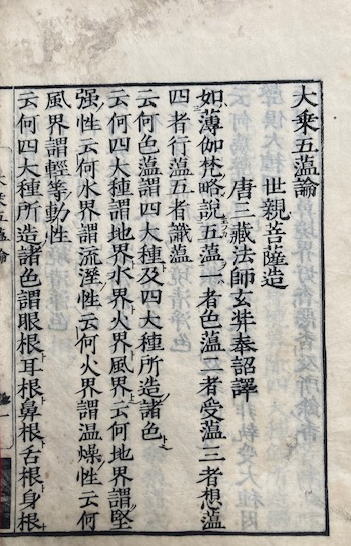 大乗五蘊論
世親菩薩造
唐三藏法師玄奘奉詔譯
如薄伽梵略說五蘊一者色蘊二者受蘊三者想蘊
四者行蘊五者識蘊
云何色蘊謂四大種及四大種所造諸色
云何四大種謂地界水界火界風界云何地界謂堅
强性云何水界謂流溼性云何火界謂温燥性云何
風界謂輕等動性
云何四大種所造諸色謂眼根耳根鼻根舌根身根